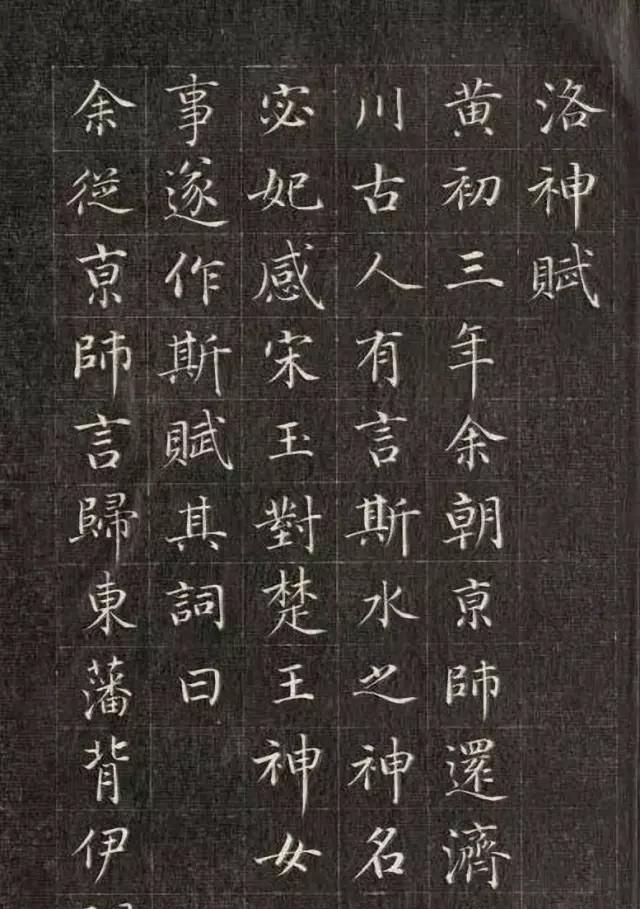 洛神賦
黄初三年余朝京師還濟
川古人有言斯水之神名
宓妃感宋玉對楚王神女
事遂作斯賦其詞曰
余從京師言歸東藩背伊